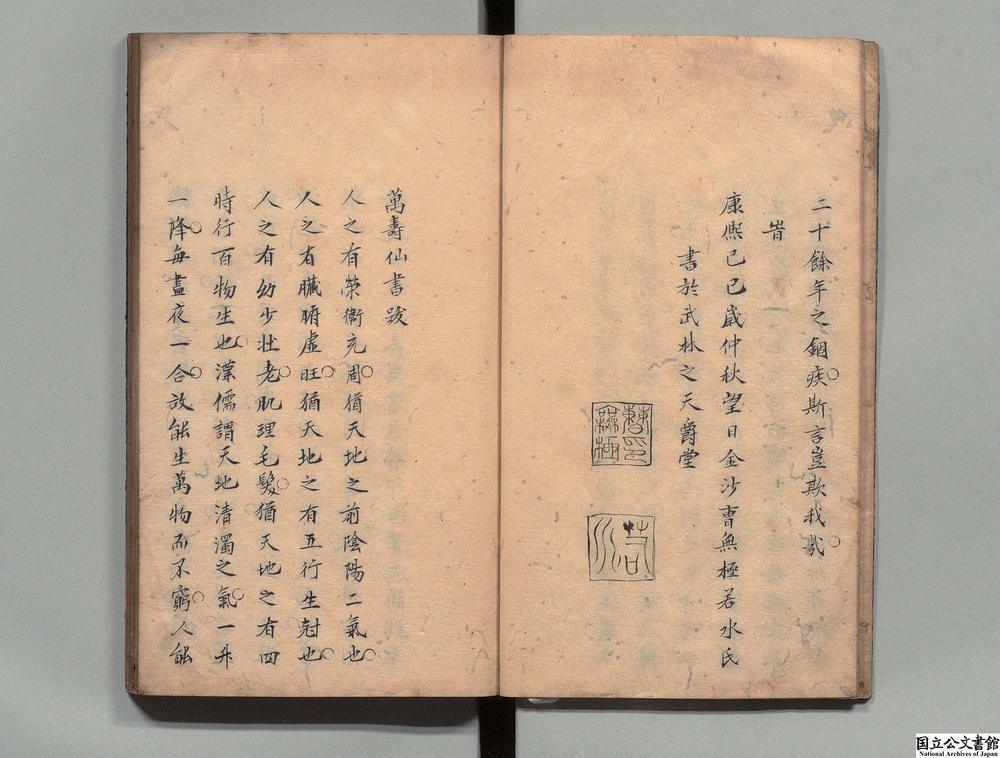 二十餘年之錮疾斯言豈欺我哉
旹
康熈己巳歲仲秋望日金沙曹無極若水氏
書於武林之天爵堂
曹印
無極
若水
萬壽仙書跋
人之有榮衞充周猶天地之前陰陽二氣也
人之有臟腑虛旺猶天地之有五行生尅也
人之有幼少壯老肌理毛髮猶天地之有四
時行百物生也漢儒謂天地清濁之氣一升
一降每晝夜一合故能生萬物而不窮人能
国立公文書館
National Archives of Japan